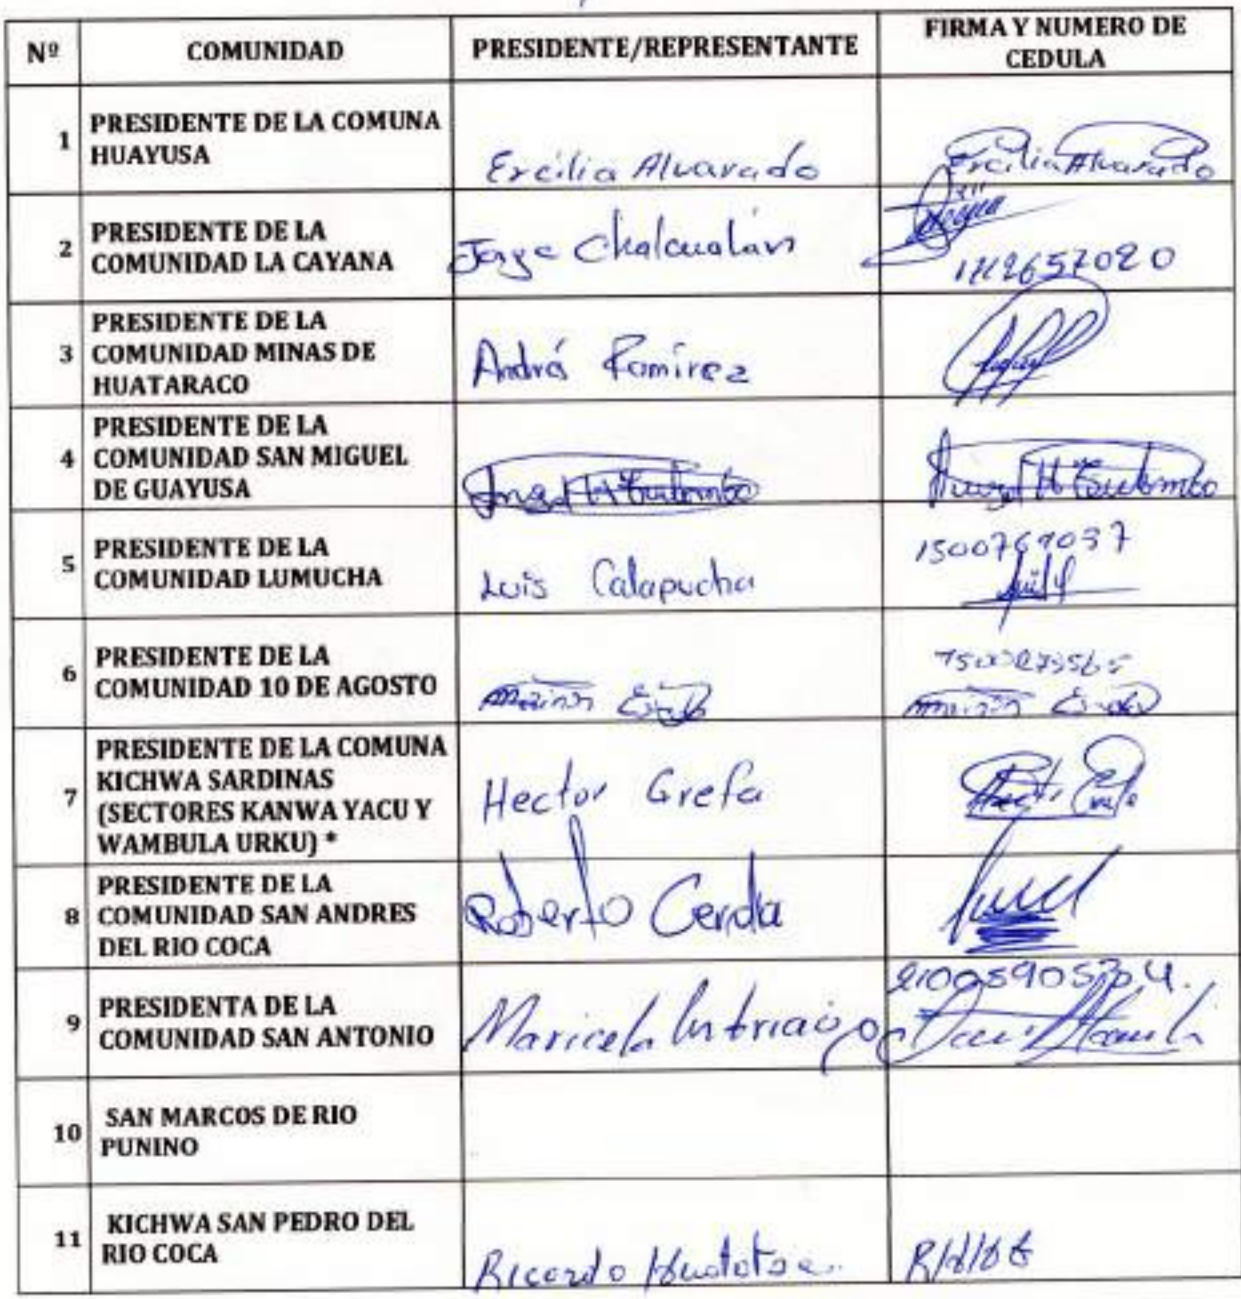 Nº COMUNIDAD PRESIDENTE/REPRESENTANTE FIRMA Y NUMERO DE CEDULA
1 PRESIDENTE DE LA COMUNA HUAYUSA Ercilia Alvarado Ercilia Alvarado
2 PRESIDENTE DE LA COMUNIDAD LA CAYANA Jorge
3 PRESIDENTE DE LA COMUNIDAD MINAS DE HUATARACO Andrés Ramírez
4 PRESIDENTE DE LA COMUNIDAD SAN MIGUEL DE GUAYUSA
5 PRESIDENTE DE LA COMUNIDAD LUMUCHA Luis Calapucha
6 PRESIDENTE DE LA COMUNIDAD 10 DE AGOSTO
7 PRESIDENTE DE LA COMUNA KICHWA SARDINAS (SECTORES KANWA YACU Y WAMBULA URKU) * Hector Grefa
8 PRESIDENTE DE LA COMUNIDAD SAN ANDRES DEL RIO COCA Roberto Cerda
9 PRESIDENTA DE LA COMUNIDAD SAN ANTONIO Maricela
10 SAN MARCOS DE RIO PUNINO
11 KICHWA SAN PEDRO DEL RIO COCA Ricardo